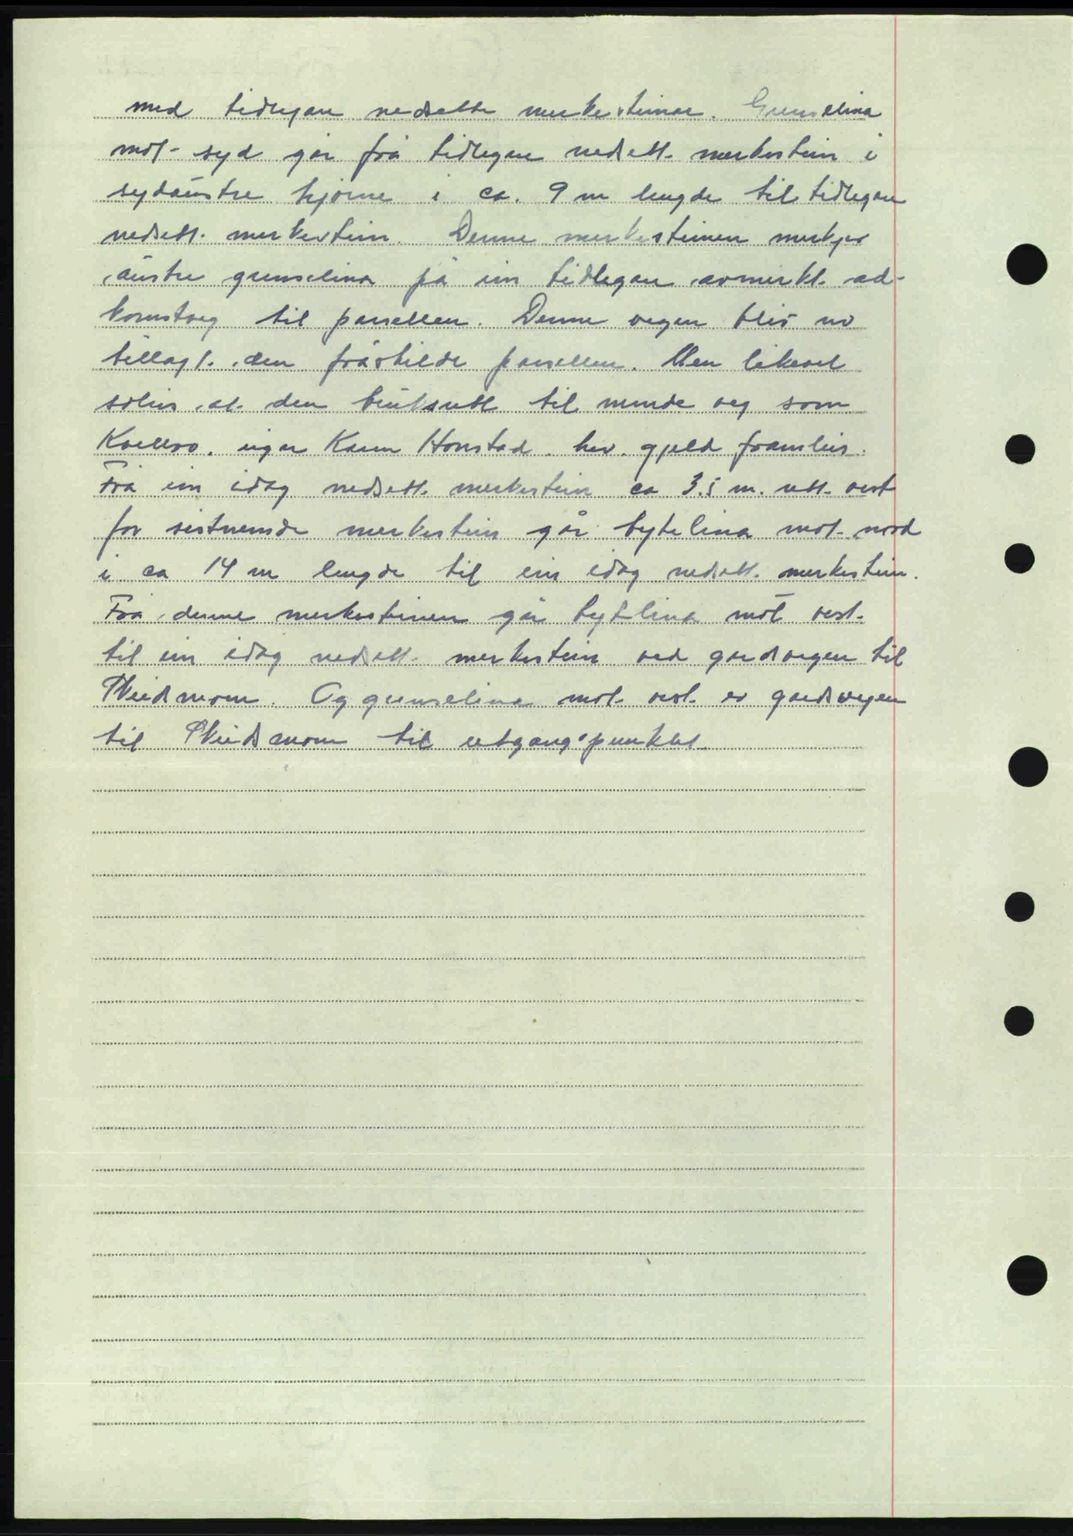 med tidlegare nedsette merkesteinar. Grenselina
mot syd går frå tidlegare nedsett merkestein i
sydaustre hjørne i ca. 9 m lengde til tidlegare
nedsett merkestein. Denne merkesteinen merkjer
austre grenselina på ein tidlegare avmerkt ad-
komstveg til parsellen. Denne vegen blir no
tillagt den fråskilde parsellen. Men likevel
soleis at den bruksrett til nemde veg som
eigar Karen Honstad hev gjeld framleis.
Frå ein idag nedsett merkestein ca 3.5 m. rett vest
for sistnemde merkestein går bytelina mot nord
i ca 14 m lengde til ein idag nedsett merkestein.
Frå denne merkesteinen går bytelina mot vest
til ein idag nedsett merkestein ved gardsvegen til
Og grenselina mot vest er gardsvegen
til utgangspunktet